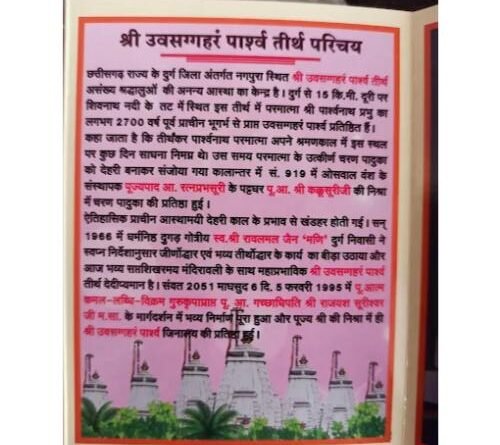 श्री उवसग्गहरं पार्श्व तीर्थ परिचय
छत्तीसगढ़ राज्य के दुर्ग जिला अंतर्गत नगपुरा स्थित श्री उवसग्गहरं पार्श्व तीर्थ
असंख्य श्रद्धालुओं की अनन्य आस्था का केन्द्र है। दुर्ग से 15 कि.मी. दूरी पर
शिवनाथ नदी के तट में स्थित इस तीर्थ में परमात्मा श्री पार्श्वनाथ प्रभु का
लगभग 2700 वर्ष पूर्व प्राचीन भूगर्भ से प्राप्त उवसग्गहरं पार्श्व प्रतिष्ठित हैं।
कहा जाता है कि तीर्थंकर पार्श्वनाथ परमात्मा अपने श्रमणकाल में इस स्थल
पर कुछ दिन साधना निमग्न थे। उस समय परमात्मा के उत्कीर्ण चरण पादुका
को देहरी बनाकर संजोया गया कालान्तर में सं. 919 में ओसवाल वंश के
संस्थापक पूज्यपाद आ. रत्नप्रभसूरी के पट्टधर पू.आ. श्री कक्कसूरीजी की निश्रा
में चरण पादुका की प्रतिष्ठा हुई।
ऐतिहासिक प्राचीन आस्थामयी देहरी काल के प्रभाव से खंडहर होती गई। सन्
1966 में धर्मनिष्ठ दुगड़ गोत्रीय स्व.श्री रावलमल जैन 'मणि' दुर्ग निवासी ने
स्वप्न निर्देशानुसार जीर्णोद्धार एवं भव्य तीर्थोद्धार के कार्य का बीड़ा उठाया और
आज भव्य सप्तशिखरमय मंदिरावली के साथ महाप्रभाविक श्री उवसग्गहरं पार्श्व
तीर्थ देदीप्यमान है। संवत 2051 माघसुद 6 दि. 5 फरवरी 1995 में पू.आत्म
कमल-लब्धि-विक्रम गुरुकृपाप्राप्त पू. आ. गच्छाधिपति श्री राजयश सूरीश्वर
जी म.सा. के मार्गदर्शन में भव्य निर्माण पूरा हुआ और पूज्य श्री की निश्रा में ही
श्री उवसग्गहरं पार्श्व जिनालय की प्रतिष्ठा हुई।